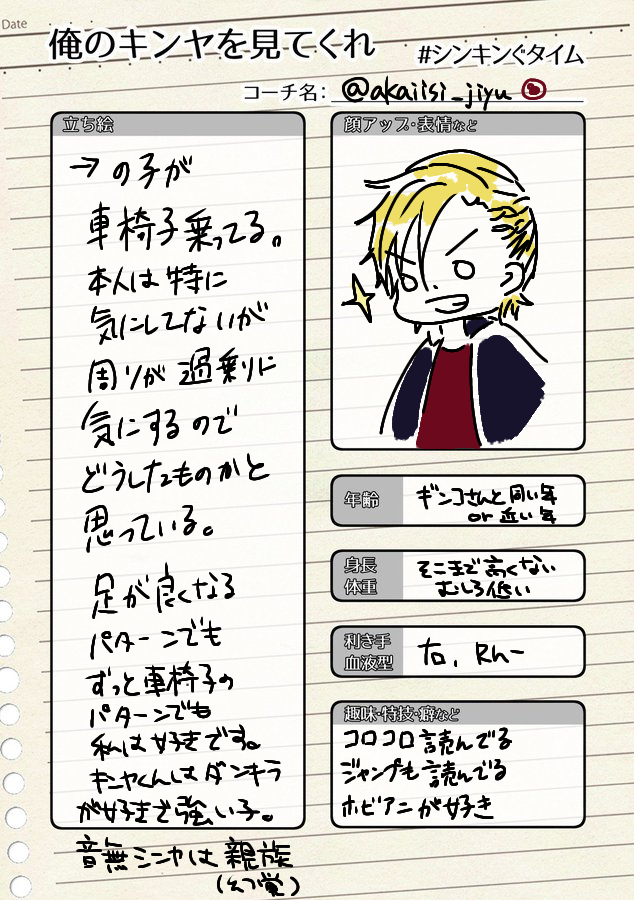 Date
俺のキンヤを見てくれ
#シンキンぐタイム
コーチ名: @akaiisi_jiyu
立ち絵
→の子が
車椅子乗ってる。
本人は特に
気にしてないが
周りが過剰に
気にするので
どうしたものかと
思っている。
足が良くなる
パターンでも
ずっと車椅子の
パターンでも
私は好きです。
キンヤくんはダンキラ
が好きで強い子。
音無シンヤは親族
(幻覚)
顔アップ・表情など
年齢
ギンコさんと同い年
or 近い年
身長
体重
そこまで高くない
むしろ低い
利き手
血液型
右、Rh-
趣味・特技・癖など
コロコロ読んでる
ジャンプも読んでる
ホビアニが好き